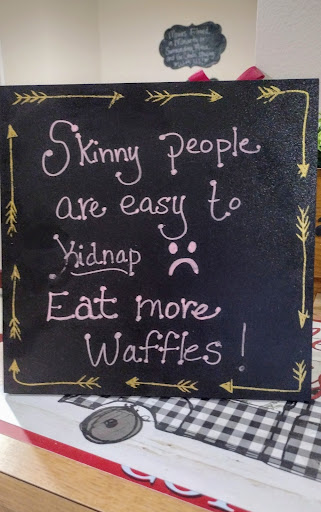 Skinny people
are easy to
kidnap ☹
Eat more
Waffles!